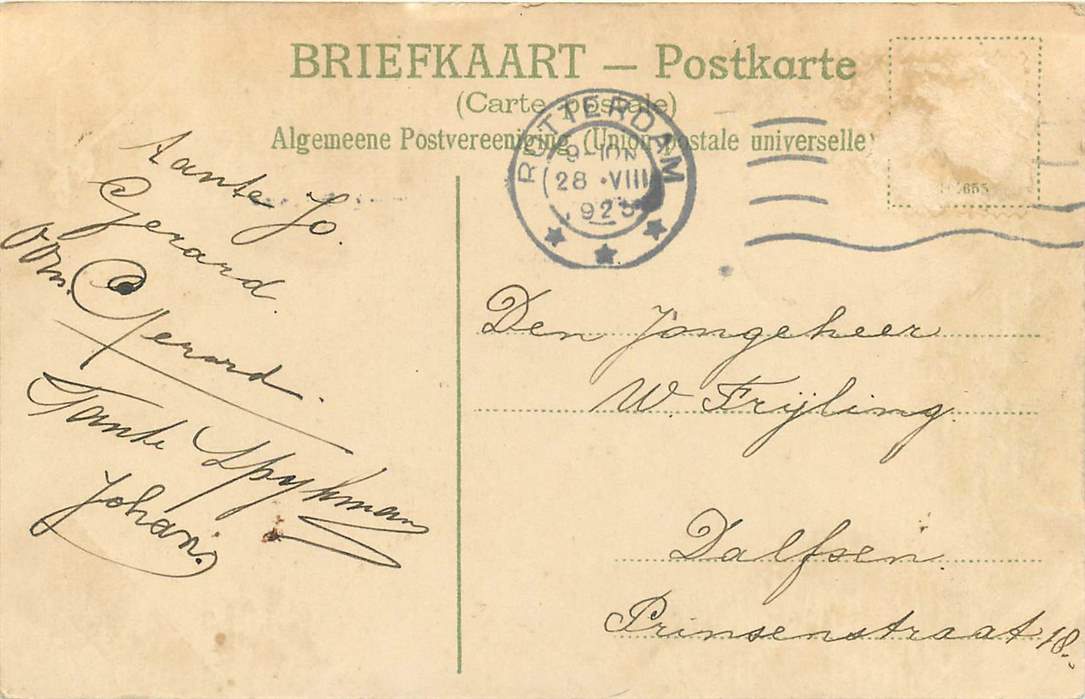 BRIEFKAART — Postkarte
(Carte postale)
Algemeene Postvereeniging (Union postale universelle)
ROTTERDAM
28 VIII
923
655
Tante Jo.
Gerard.
Oom Gerard.
Tante Spykman
Johan.
Den Jongeheer
W. Frijling.
Dalfsen.
Prinsenstraat 18.